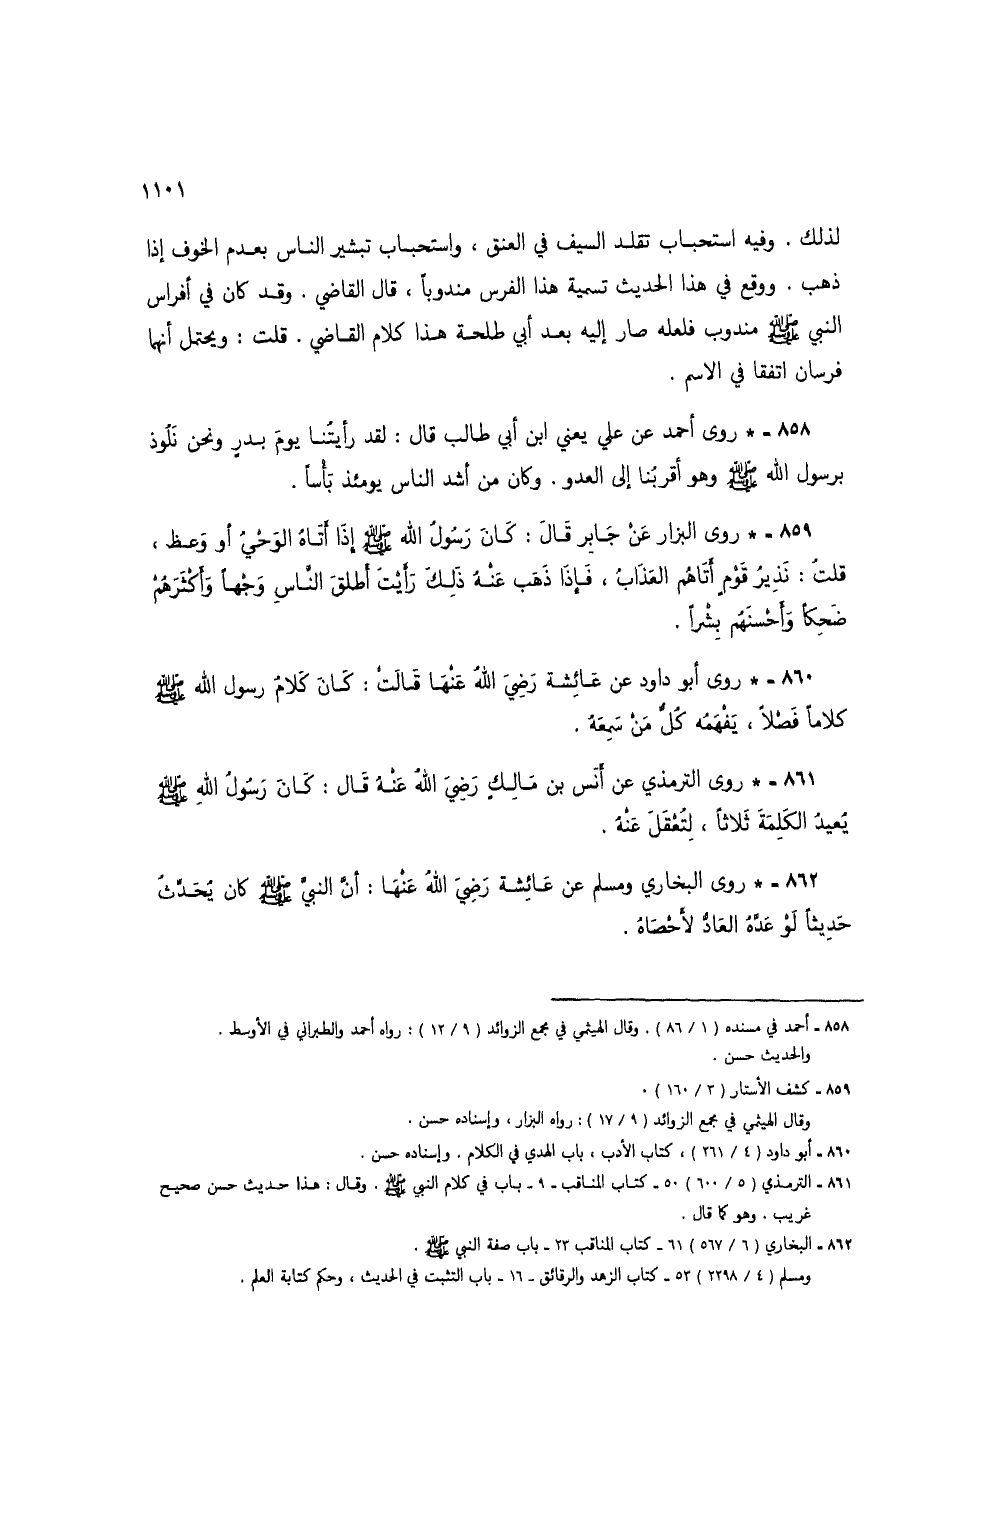 ١١٠١
لذلك . وفيه استحباب تقلد السيف في العنق ، واستحباب تبشير الناس بعدم الخوف إذا
ذهب . ووقع في هذا الحديث تسمية هذا الفرس مندوباً ، قال القاضي . وقد كان في أفراس
النبي ﷺ مندوب فلعله صار إليه بعد أبي طلحة هذا كلام القاضي . قلت : ويحتمل أنها
فرسان اتفقا في الاسم .
٨٥٨ - * روى أحمد عن علي يعني ابن أبي طالب قال : لقد رأيتُنا يومَ بدرٍ ونحن نَلُوذ
برسول الله ﷺ وهو أقربُنا إلى العدو . وكان من أشد الناس يومئذ بَأْساً .
٨٥٩ - * روى البزار عَنْ جَابِرٍ قَالَ : كَانَ رَسُولُ الله ﷺ إذَا أَتَاهُ الوَحْيُ أو وَعظ ،
قلتُ : نَذِيرُ قَوْمٍ أَتَاهُم العَذَابُ ، فَإِذَا ذَهَب عَنْهُ ذَلِكَ رَأَيْتَ أَطلقَ النَّاسِ وَجْهاً وَأَكْثَرَهُمْ
ضَحِكاً وَأَحْسنَهُم بِشْراً .
٨٦٠ - * روى أبو داود عن عَائِشة رَضِيَ اللهُ عَنْهَا قَالَتْ : كَانَ كَلامُ رسول الله ﷺ
كلاماً فَصْلاً ، يَفْهَمُه كُلُّ مَنْ سَمِعَهُ .
٨٦١ - * روى الترمذي عن أَنَس بن مَالِكٍ رَضِيَ اللهُ عَنْهُ قَال : كَانَ رَسُولُ اللهِ ﷺ
يُعيدُ الكَلِمَةَ ثَلاثاً ، لِتُعْقَلَ عَنْهُ .
٨٦٢ - * روى البخاري ومسلم عن عَائِشة رَضِيَ اللهُ عَنْهَا : أنَّ النبيَّ ﷺ كان يُحَدِّثُ
حَدِيثاً لَوْ عَدَّهُ العَادُّ لأَحْصَاهُ .
٨٥٨ - أحمد في مسنده ( ١ / ٨٦ ) . وقال الهيثمي في مجمع الزوائد ( ٩ / ١٢ ) : رواه أحمد والطبراني في الأوسط .
والحديث حسن .
٨٥٩ - كشف الأستار ( ٣ / ١٦٠ ) .
وقال الهيثمي في مجمع الزوائد ( ٩ / ١٧ ) : رواه البزار ، وإسناده حسن .
٨٦٠ - أبو داود ( ٤ / ٢٦١ ) ، كتاب الأدب ، باب الهدي في الكلام . وإسناده حسن .
٨٦١ - الترمذي ( ٥ / ٦٠٠ ) ٥٠ - كتاب المناقب - ٩ - باب في كلام النبي ﷺ . وقال : هذا حديث حسن صحيح
غريب . وهو كما قال .
٨٦٢ - البخاري ( ٦ / ٥٦٧ ) ٦١ - كتاب المناقب ٢٣ - باب صفة النبي ﷺ .
ومسلم ( ٤ / ٢٢٩٨ ) ٥٣ - كتاب الزهد والرقائق - ١٦ - باب التثبت في الحديث ، وحكم كتابة العلم .